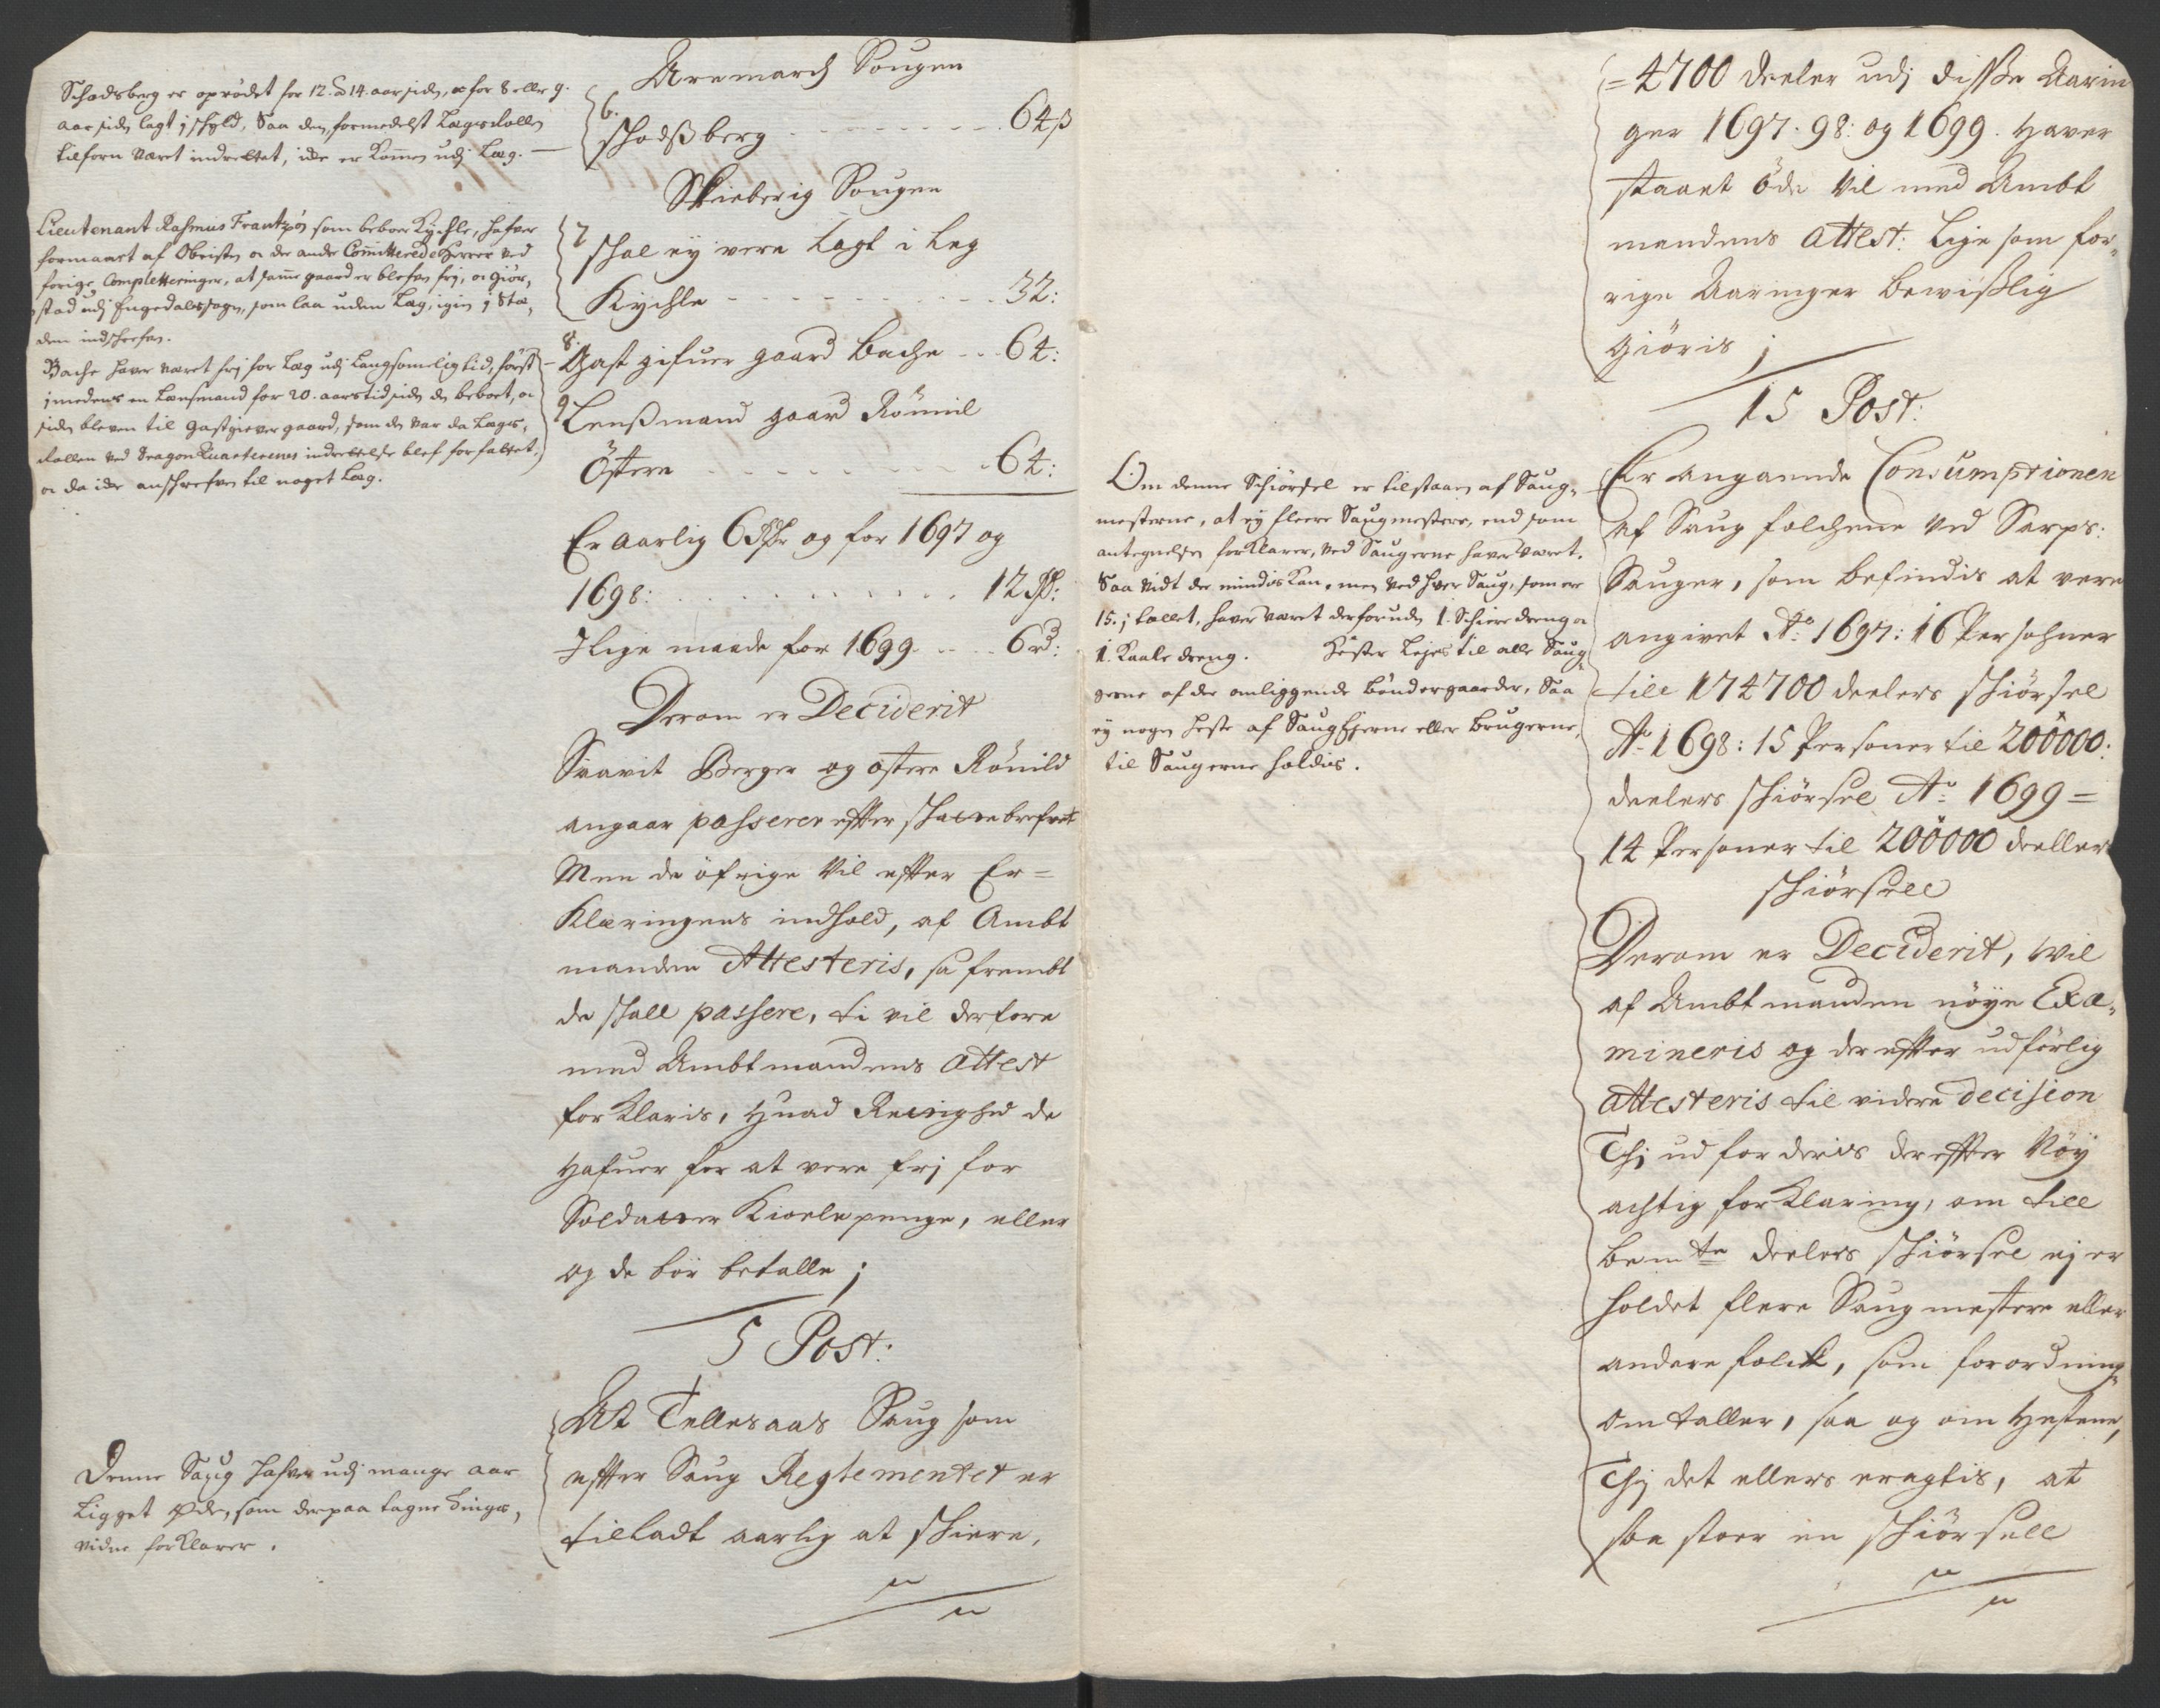 Schodsberg er oprödet for 12. à 14. aar siden, oc for 8 eller 9.
aar siden lagt i schyld, Saa den formedelst Lægsrollen
tilforn været indrettet, icke er kommen udj Læg. —
Lieutenant Rasmus Frantzön som beboer Kychle, hafver
formaaet af Obristen oc de andre Committerede Herrer ved
forige Completteringer, at samme gaard er blefven frj, oc Giör,
stad udj Engedalssogn, som laa uden Læg, igien i Stæ,
den indschrefven.
Bache hafver været frj for Læg udj Langsommelig tid, först
imedens en Lænsmand for 20. aars tid siden den beboet, oc
siden bleven til gastgiever gaard, som den var da Lægs,
Rollen ved Dragon Quarterernes indrettelse blef forfattet,
oc da icke anschrefven til noget Læg.
Denne Saug hafver udj mange aar
Ligget öde, som derpaa tagne Tings,
vidne forklarer.
Aremarch Sougen
6.
schodßberg - - - - - - - - 64 ß
Skieberig Sougen
7
schal ey vere Lagt i Leg
Kychle - - - - - - - - - 32:
8.
Gast gifuer gaard Bache - - 64:
9
Lenßmand gaard Römil
östere - - - - - - - - - 64:
Er aarlig 6 Rdr og for 1697 og
1698: . . . . . . . . . . 12 Rd:
I lige maade for 1699 - - - 6 rd:
Derom er Deciderit
Svarit Berger og östere Römild
angaar passerer effter schattebrefvet
Men de öfrige Vil effter Er=
Klæringens indhold, af Ambt
manden Attesteris, sa frembt
de schall passere, ti vil derfore
med Ambtmandens attest
forklaris, Huad Rettighed de
Hafuer for at vere frj for
Soldatter Kiolepenge, eller
og de bör betalle;
5 Post:
At Tellesaas Saug som
effter Saug Reglementet er
tilladt aarlig at schiere,
Om denne Schiörsel er tilstaaen af Saug,
mesterne, at ey fleere Saugmestere, end som
antegnelsen forklarer, ved Saugerne hafver været.
Saa vidt de mindis kan, men ved hver Saug, som ere
15. i tallet, hafver været desforuden 1. Schiere dreng oc
1. Kaale dreng. Hester Lejes til alle Saug
gerne af de omliggende bönder gaarder, Saa
ey nogen heste af Saug Ejerne eller brugerne,
til Saugerne holdes.
= 4700 deeler udj disße Aarin
ger 1697. 98: og 1699. Haver
staaet öde Vil med Ambt
mandens attest: Lige som for,
rige Aaringer bewißlig
giöris;
15 Post:
Er angaaende Consumptionen
af Saug folchene ved Sarps:
Sauger, som befindis at vere
angivet Ao: 1697: 16 Persohner
till 174700 deelers schiörsel
Ao: 1698: 15 Personer til 200000:
deelers schiörsel Ao: 1699 =
14 Personer til 200000 deeller
schiörsell
Derom er Deciderit, wil
af Ambtmanden nöye Exa,
mineris og dereffter udförlig
attesteris til videre decision
Thj udfordris dereffter Nöy
achtig forklaring, om till
bemte deelers schiörsel ej er
holdet flere Saugmestere eller
andere folck, som forordning
omtaller, saa og om Hestene,
Thj det ellers eragtis, at
saa stoer en schiörsell